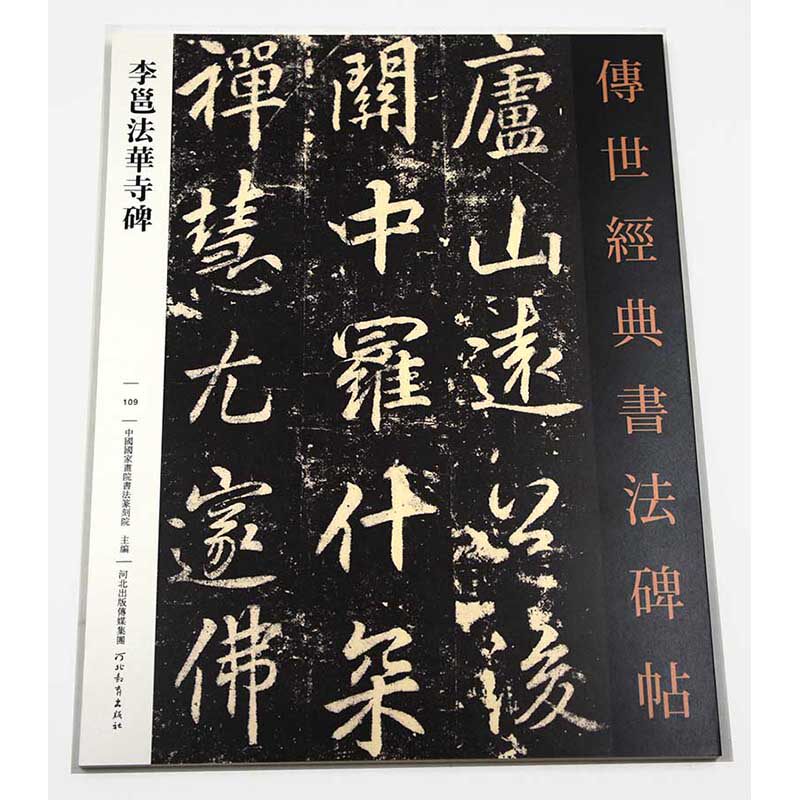 傳世經典書法碑帖
廬山遠後
關中羅什
禪慧尤邃佛
李邕法華寺碑
109
中國國家畫院書法篆刻院 主編
河北出版傳媒集團
河北教育出版社